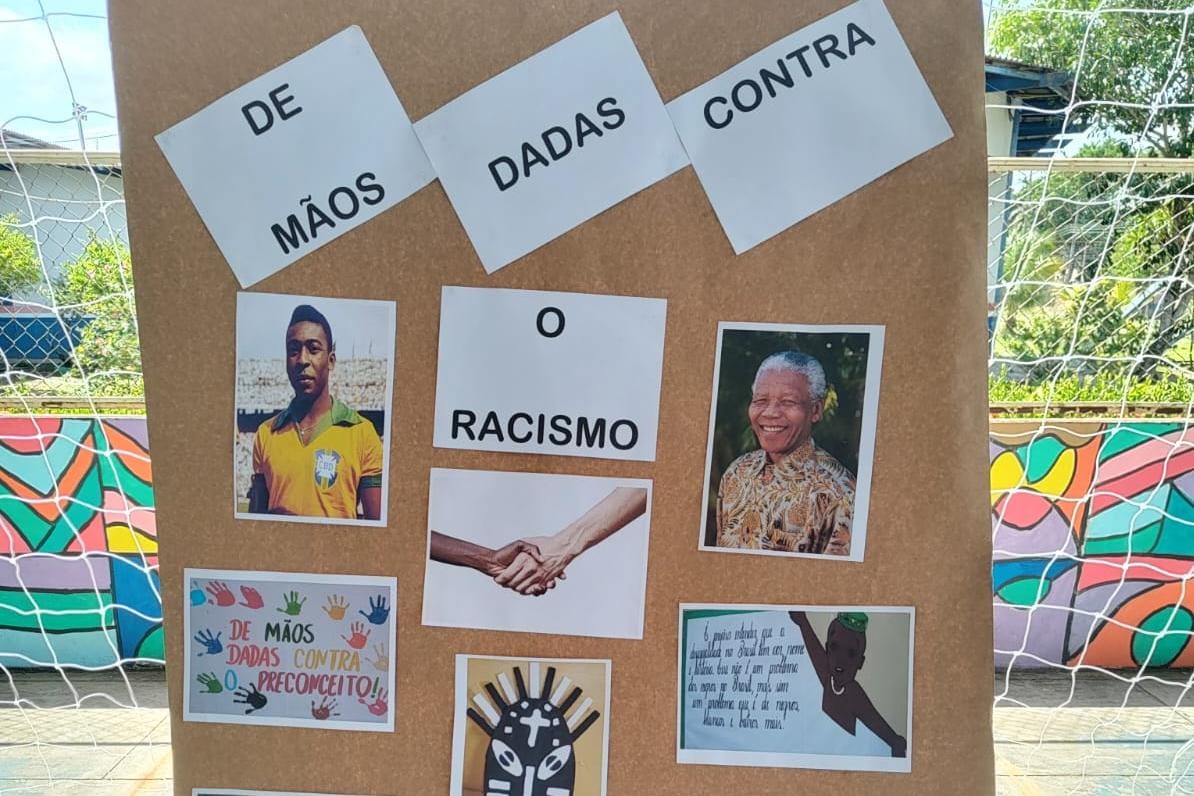 DE
MÃOS
DADAS
CONTRA
O
RACISMO
CBD
DE MÃOS
DADAS CONTRA
O PRECONCEITO!
É preciso entender que a
desigualdade no Brasil tem cor, nome
e história. Esse não é um problema
dos negros no Brasil, mas sim
um problema que é de negros,
brancos e outros mais.